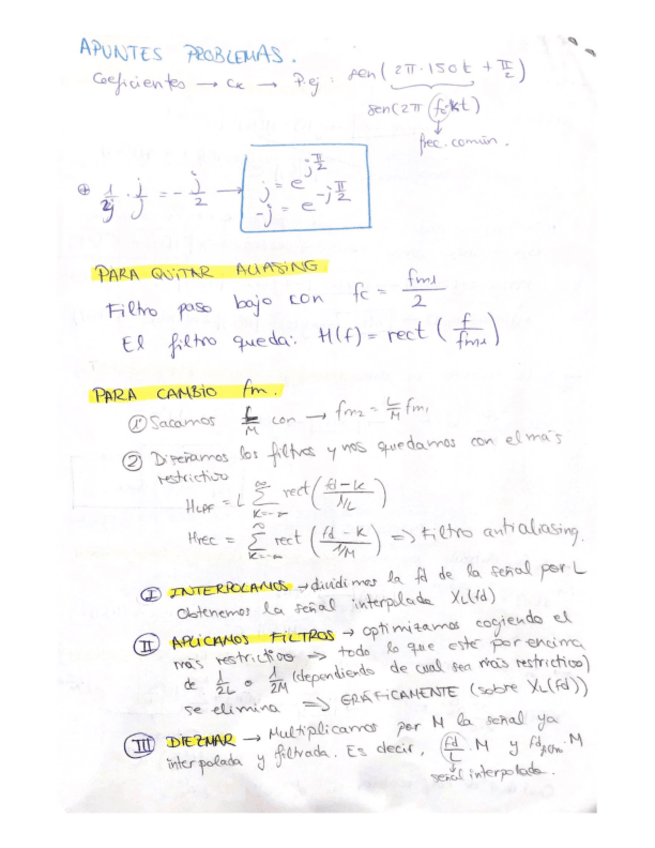 APUNTES PROBLEMAS.
Coeficientes → Cκ → P.ej: sen(2π·150t + π/2)
sen(2π f₀·kt)
frec. común.
⊕ 1/2j · j/j = -j/2 → j = e^{jπ/2}
-j = e^{-jπ/2}
PARA QUITAR ALIASING
Filtro paso bajo con fc = fm1/2
El filtro queda: H(f) = rect(f/fm1)
PARA CAMBIO fm.
① Sacamos L/M con → fm2 = L/M fm1
② Diseñamos los filtros y nos quedamos con el más
restrictivo
HLPF = L ∑_{k=-∞}^{∞} rect((fd-k)/(1/L))
Hrec = ∑_{k=-∞}^{∞} rect((fd-k)/(1/M)) => Filtro antialiasing.
Ⅰ INTERPOLAMOS → dividimos la fd de la señal por L
Obtenemos la señal interpolada XL(fd)
Ⅱ APLICAMOS FILTROS → optimizamos cogiendo el
más restrictivo => todo lo que esté por encima
de 1/2L o 1/2M (dependiendo de cual sea más restrictivo)
se elimina => GRÁFICAMENTE (sobre XL(fd))
Ⅲ DIEZMAR → Multiplicamos por M la señal ya
interpolada y filtrada. Es decir, fd/L · M y fd · M
señal interpolada.